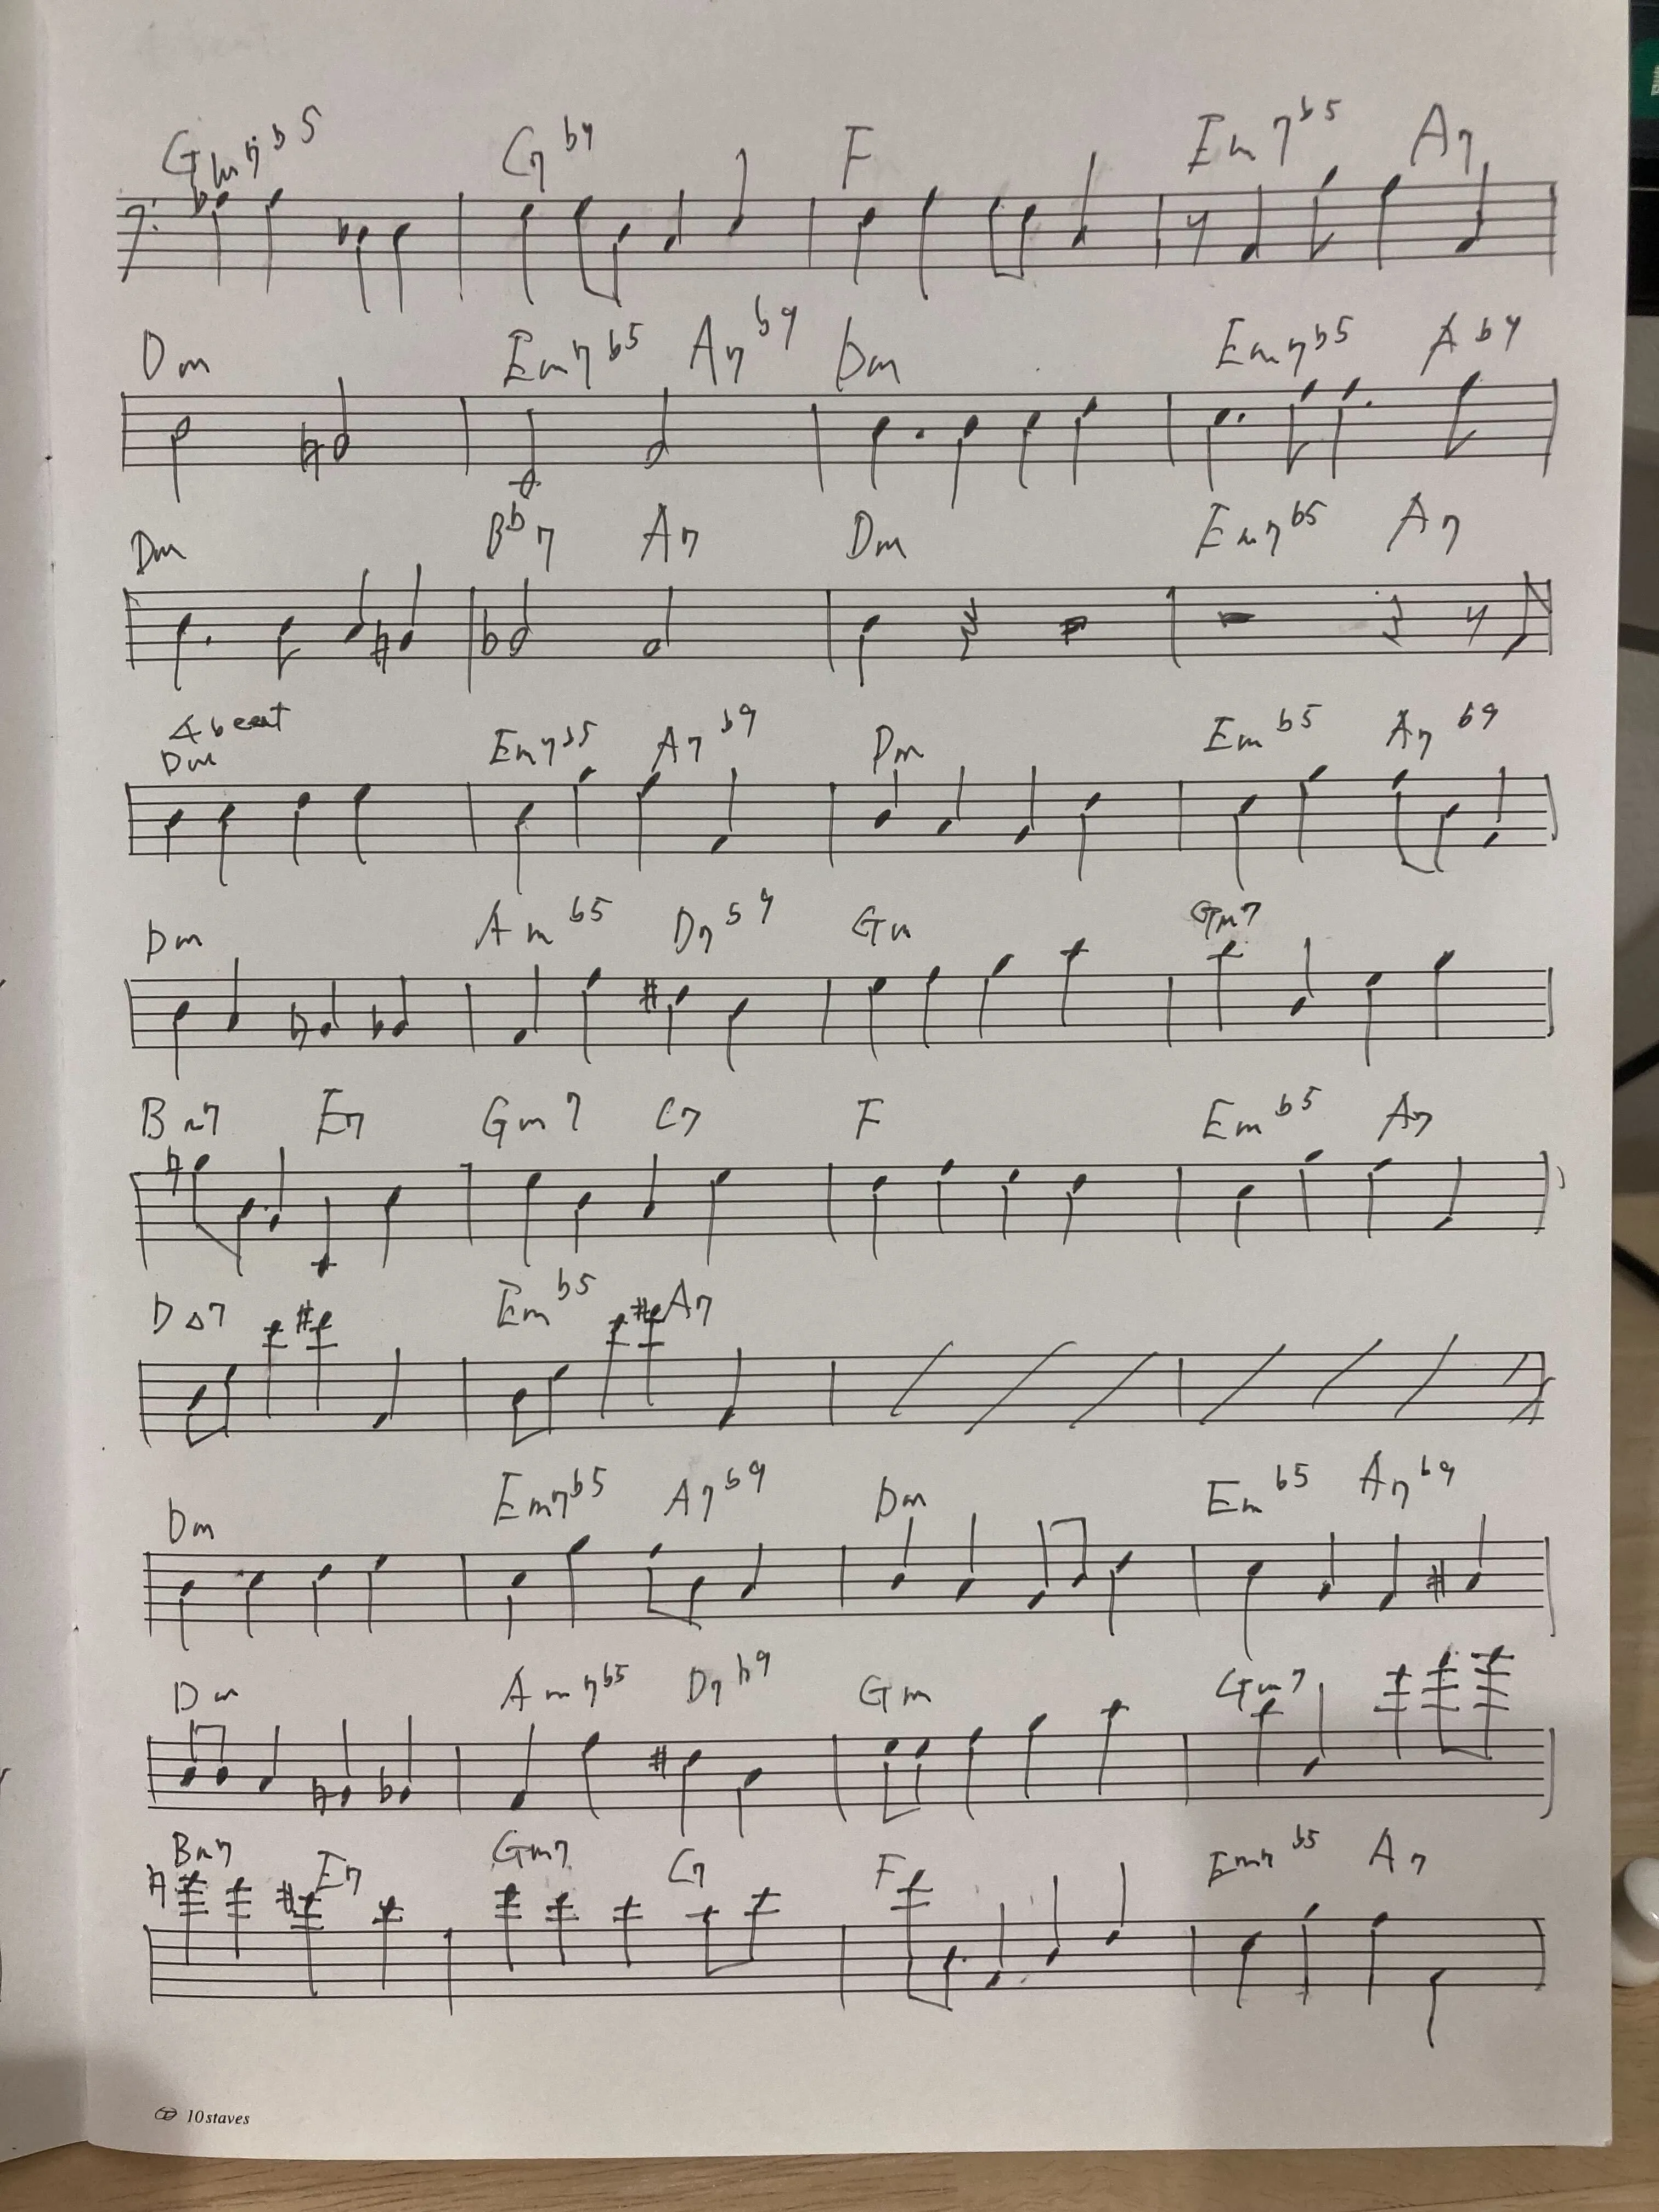 Gm7b5 C7b9 F Em7b5 A7
Dm Em7b5 A7b9 Dm Em7b5 Ab9
Dm Bb7 A7 Dm Em7b5 A7
4 beat
Dm Em7b5 A7b9 Dm Emb5 A7b9
Dm Amb5 D7b9 Gm Gm7
Bm7 E7 Gm7 C7 F Emb5 A7
D△7 Emb5 A7
Dm Em7b5 A7b9 Dm Emb5 A7b9
Dm Am7b5 D7b9 Gm Gm7
Bm7 E7 Gm7 C7 F Em7b5 A7
10 staves